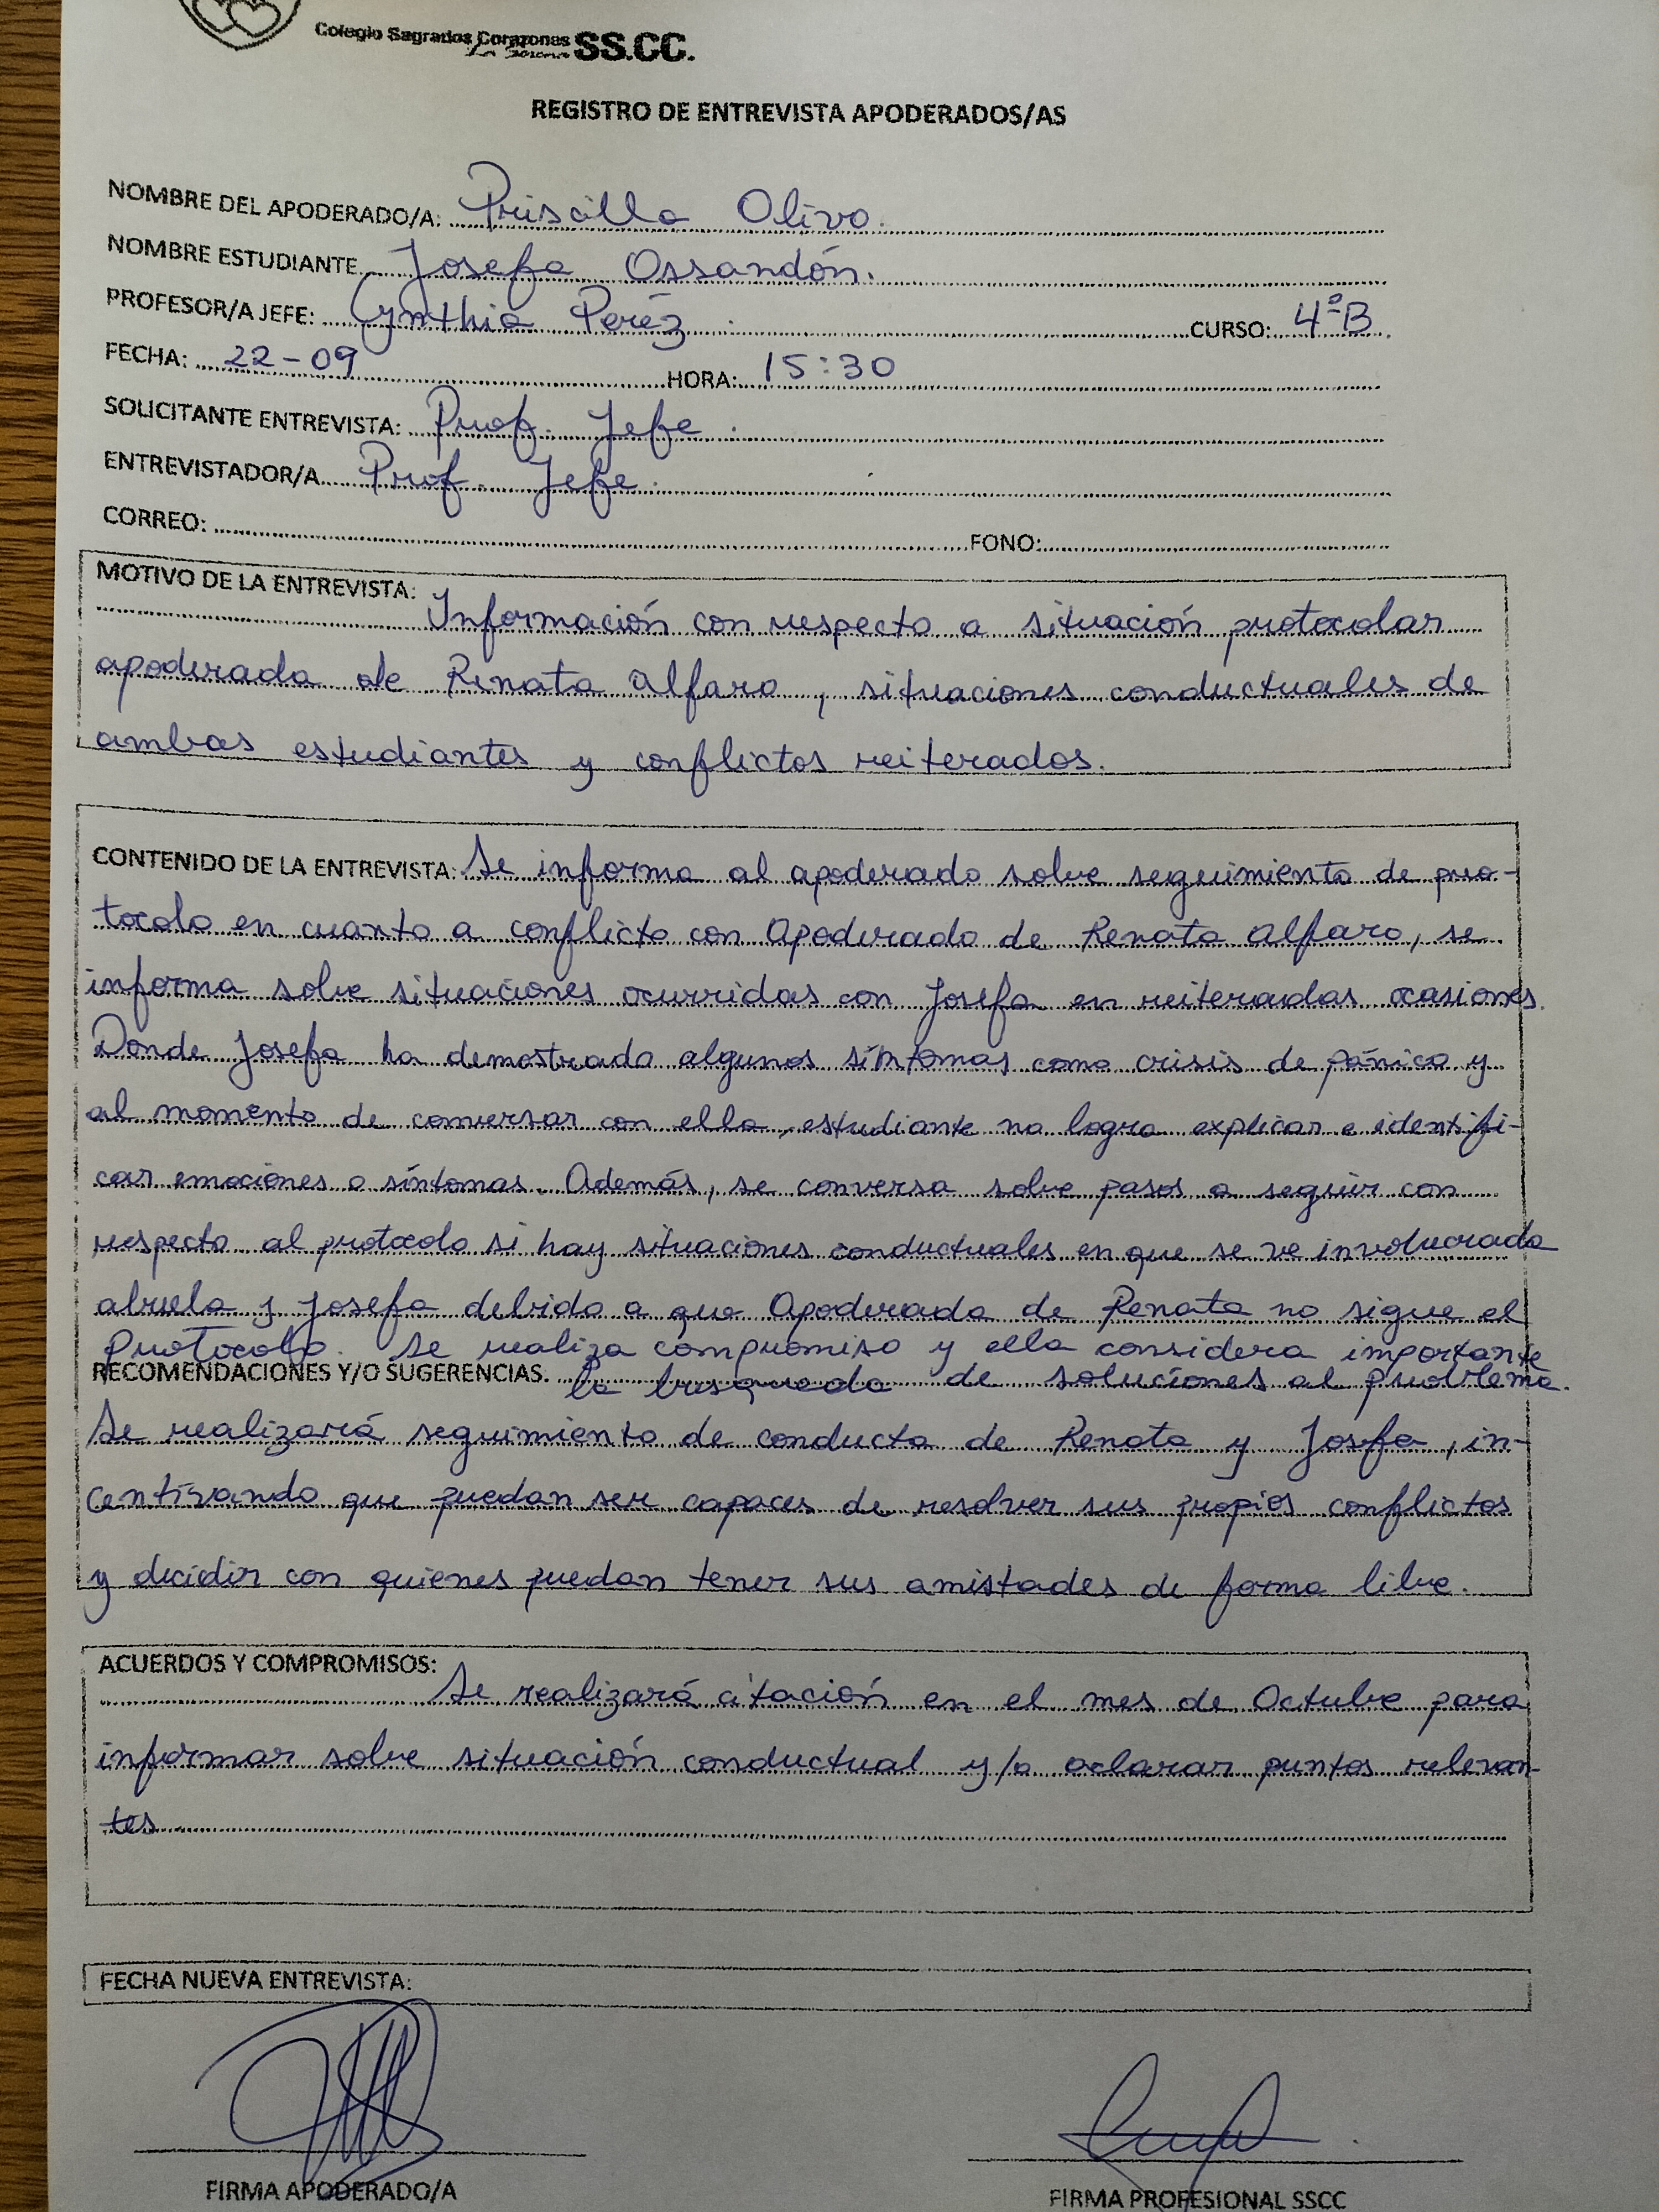 Colegio Sagrados Corazones SS.CC.
La Serena
REGISTRO DE ENTREVISTA APODERADOS/AS
NOMBRE DEL APODERADO/A: Priscilla Olivo.
NOMBRE ESTUDIANTE Josefa Ossandón.
PROFESOR/A JEFE: Cynthia Peréz. CURSO: 4°B
FECHA: 22-09 HORA: 15:30
SOLICITANTE ENTREVISTA: Prof. Jefe.
ENTREVISTADOR/A Prof. Jefe.
CORREO: FONO:
MOTIVO DE LA ENTREVISTA: Información con respecto a situación protocolar
apoderada de Renata Alfaro, situaciones conductuales de
ambas estudiantes y conflictos reiterados.
CONTENIDO DE LA ENTREVISTA: Se informa al apoderado sobre seguimiento de pro-
tocolo en cuanto a conflicto con Apoderado de Renata Alfaro, se
informa sobre situaciones ocurridas con Josefa en reiteradas ocasiones.
Donde Josefa ha demostrado algunos síntomas como crisis de pánico y
al momento de conversar con ella, estudiante no logra explicar e identifi-
car emociones o síntomas. Además, se conversa sobre pasos a seguir con
respecto al protocolo si hay situaciones conductuales en que se ve involucrada
abuela y Josefa debido a que Apoderada de Renata no sigue el
protocolo. Se realiza compromiso y ella considera importante
RECOMENDACIONES Y/O SUGERENCIAS. la busqueda de soluciones al problema.
Se realizará seguimiento de conducta de Renata y Josefa, in-
centivando que puedan ser capaces de resolver sus propios conflictos
y decidir con quienes puedan tener sus amistades de forma libre.
ACUERDOS Y COMPROMISOS: Se realizará citación en el mes de Octubre para
informar sobre situación conductual y/o aclarar puntos relevan-
tes
FECHA NUEVA ENTREVISTA:
FIRMA APODERADO/A FIRMA PROFESIONAL SSCC